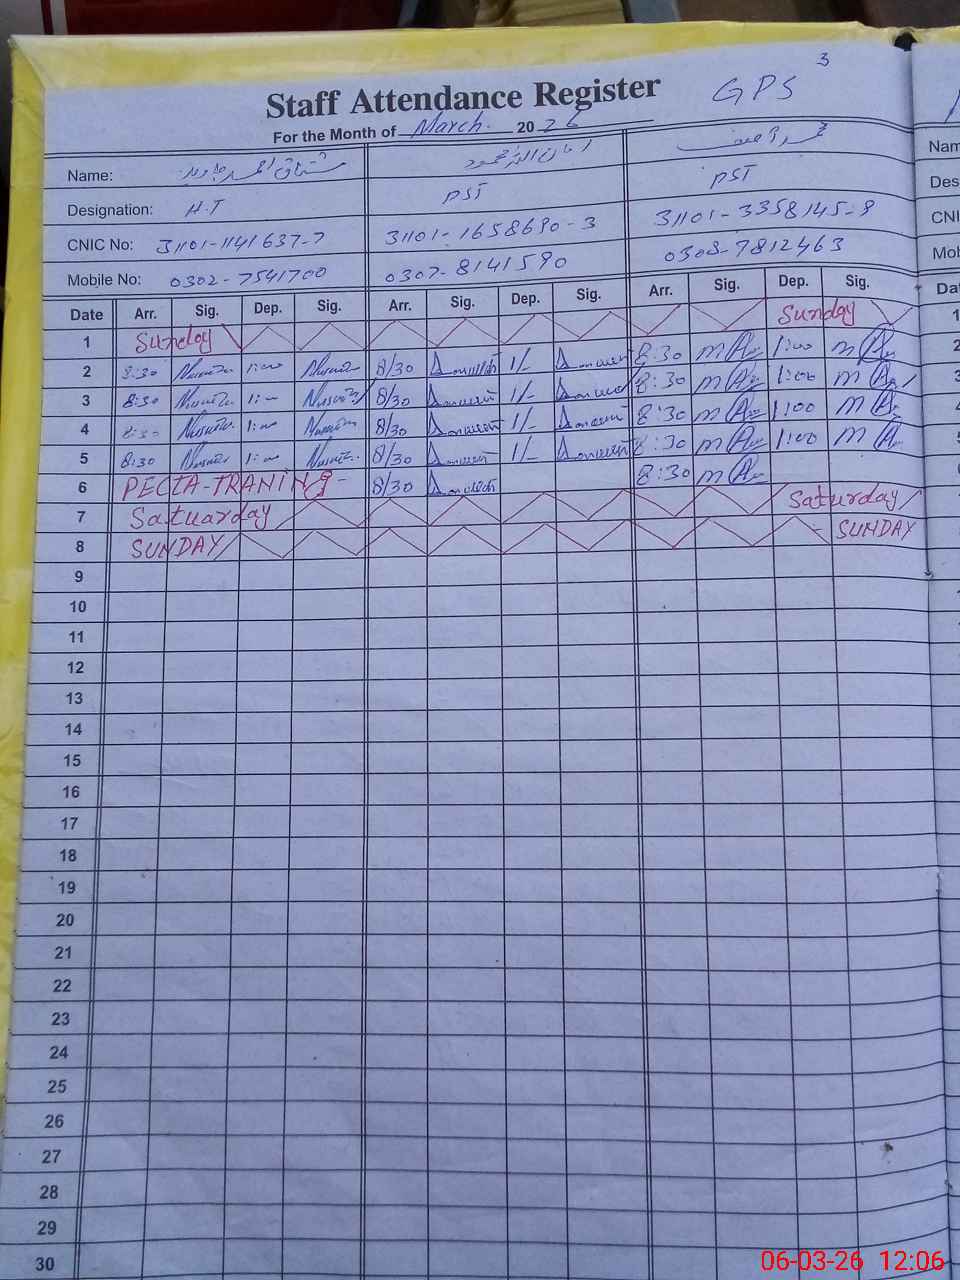 3
Staff Attendance Register GPS
For the Month of March. 2026
Name: مشتاق احمد جاوید امان اللہ محمود
Designation: H.T PST PST
CNIC No: 31101-1141637-7 31101-1658690-3 31101-3358145-9
Mobile No: 0302-7541700 0307-8141590 0308-7812463
Date Arr. Sig. Dep. Sig. Arr. Sig. Dep. Sig. Arr. Sig. Dep. Sig.
1 Sunday Sunday
2 8:30 1:00 8/30 1/- 8:30 1:00
3 8:30 1:00 8/30 1/- 8:30 1:00
4 8:30 1:00 8/30 1/- 8:30 1:00
5 8:30 1:00 8/30 1/- 8:30 1:00
6 PECTA-TRANING- 8/30 8:30
7 Satuarday Saturday
8 SUNDAY SUNDAY
9
10
11
12
13
14
15
16
17
18
19
20
21
22
23
24
25
26
27
28
29
30
06-03-26 12:06